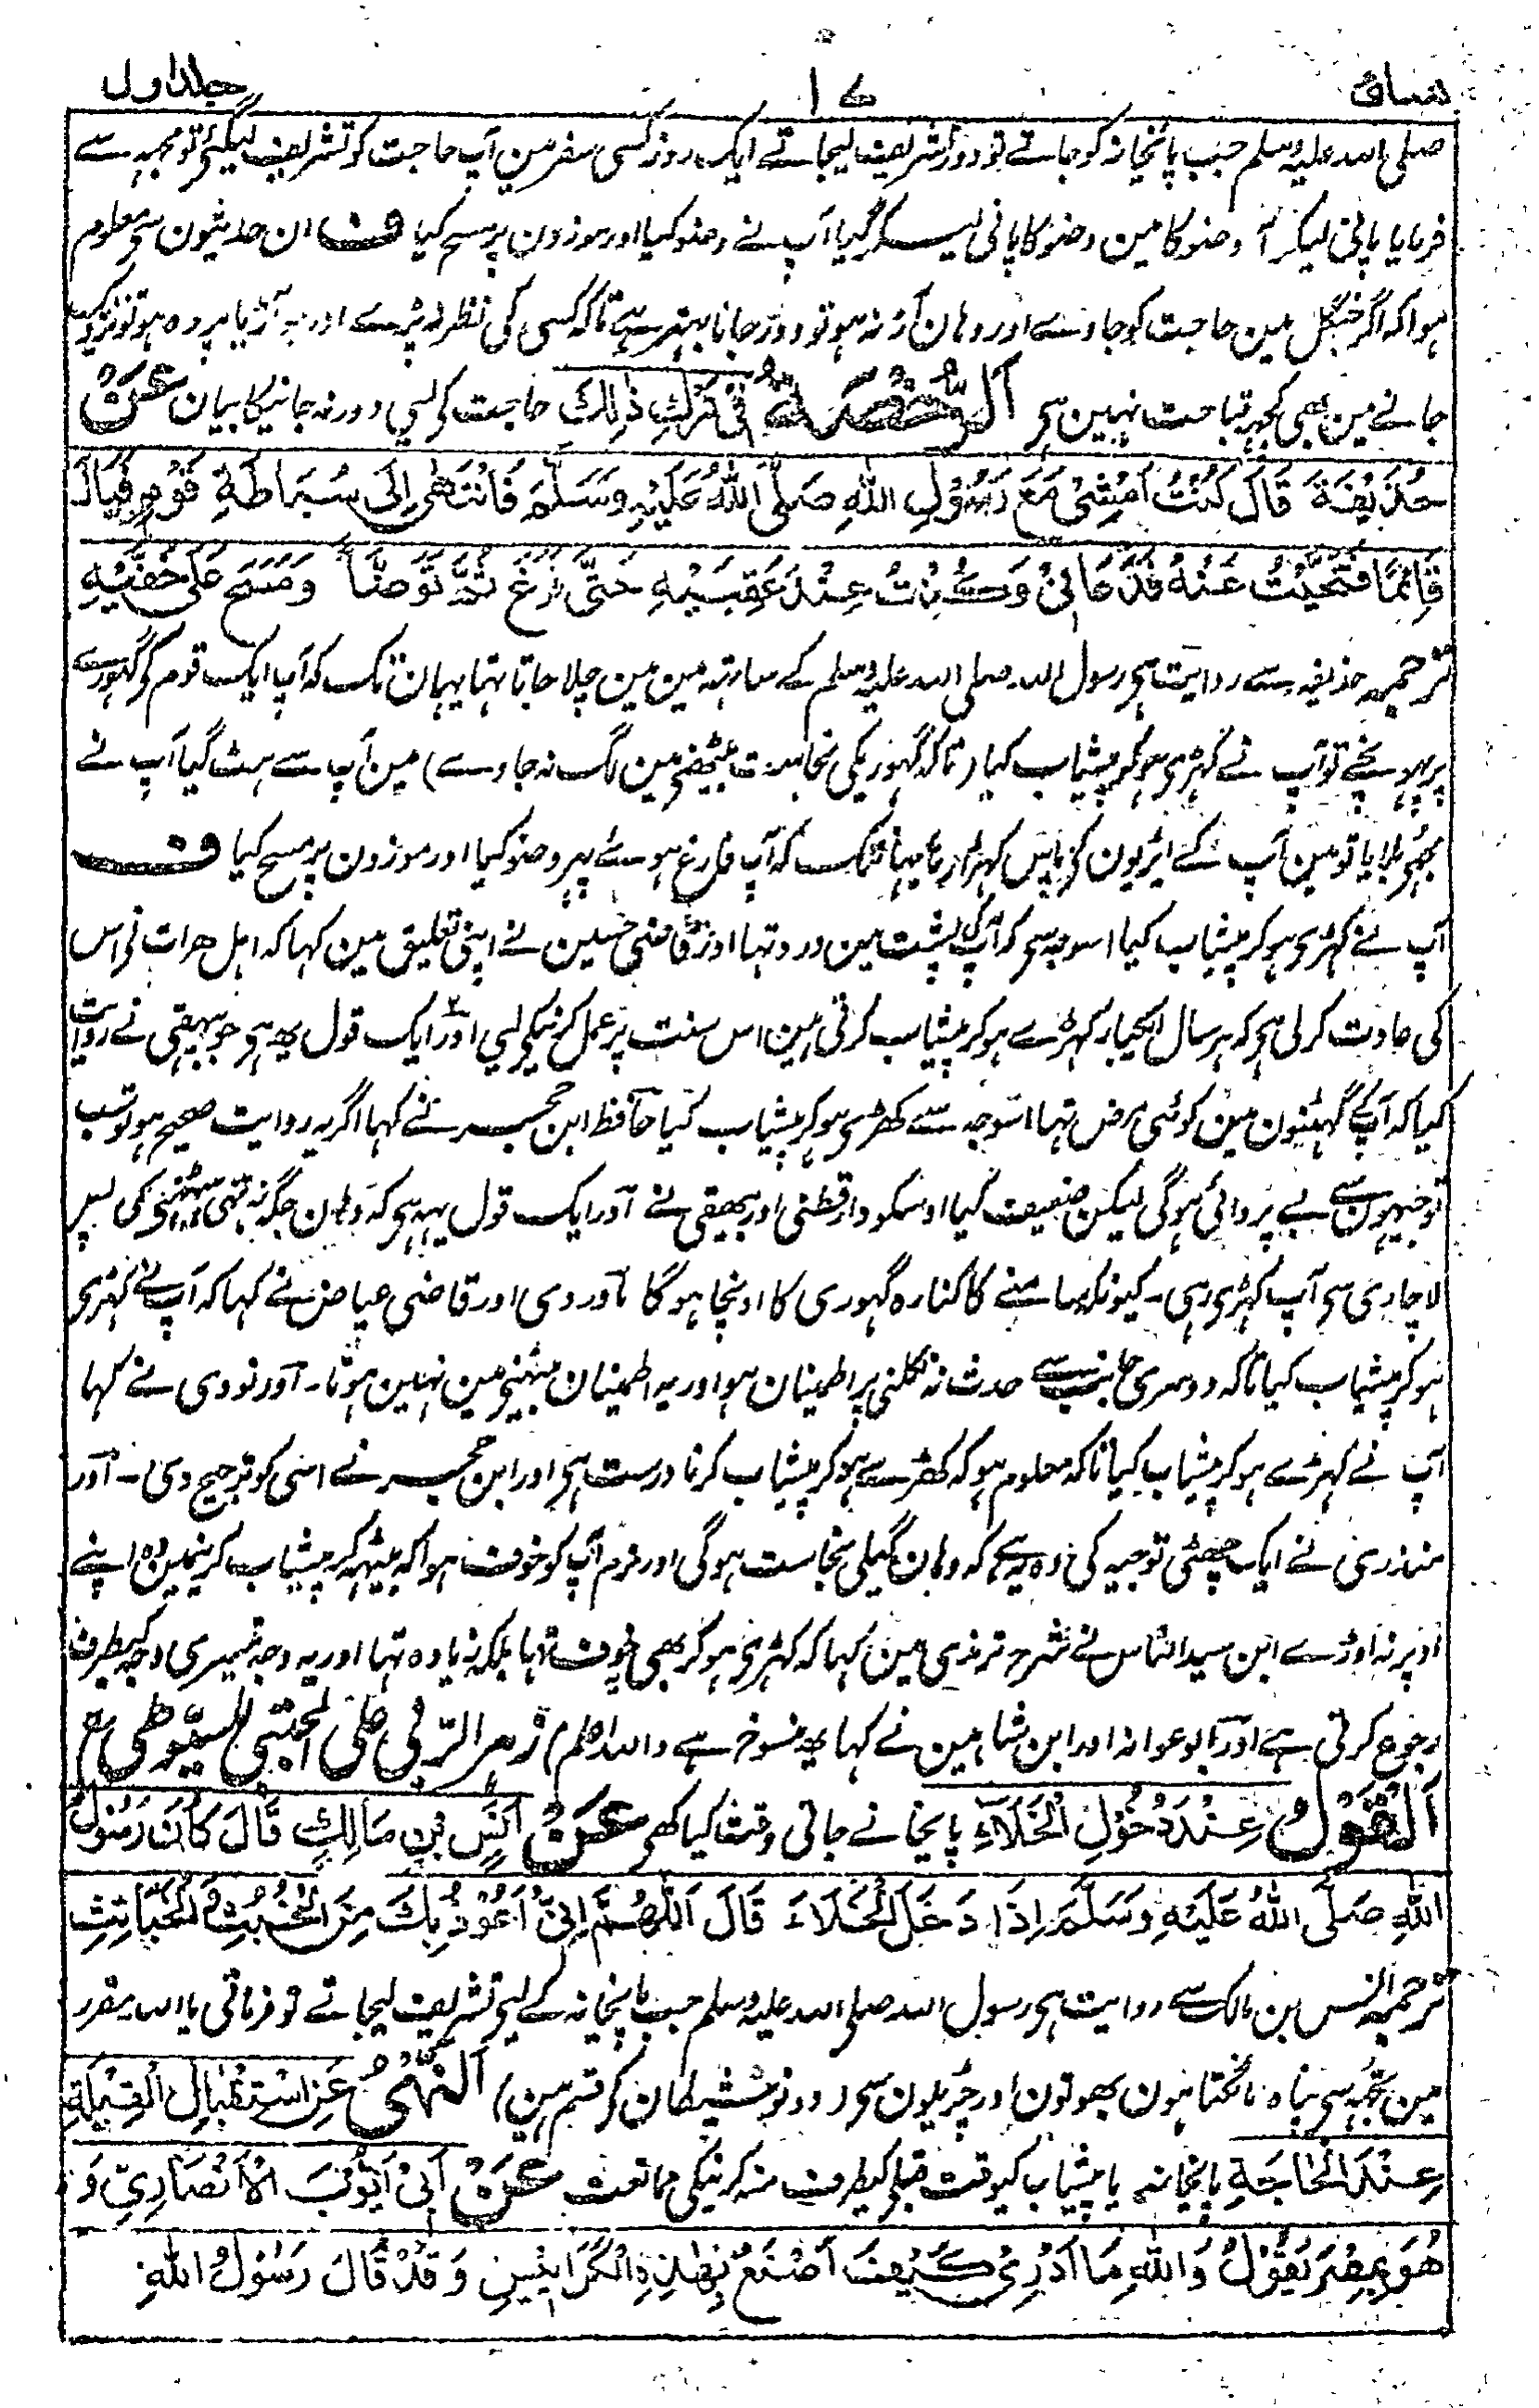 نسائی ۱۷ جلد اول
صلی اللہ علیہ وسلم جب پائخانہ کو جاتے تو دور تشریف لیجاتے ایک روز کسی سفر مین آپ حاجت کو تشریف لیگئے تو مجہہ سے
فرمایا پانی لیکر آ وضو کا مین وضو کا پانی لیکر گیا آپ نے وضو کیا اور موزون پر مسح کیا ف ان حدیثون سے معلوم
ہوا کہ اگر جنگل مین حاجت کو جاوے اور وہان آڑ نہ ہو تو دور جانا بہتر ہے تاکہ کسی کی نظر نہ پڑے اور جو آڑ یا پردہ ہو تو نزدیک
جانے مین بھی کچہہ قباحت نہین ہے اَلرُّخْصَةُ فِيْ تَرْكِ ذٰلِكَ حاجت کے لیے دور نہ جانیکا بیان عَنْ
حُذَيْفَةَ قَالَ كُنْتُ اَمْشِيْ مَعَ رَسُوْلِ اللهِ صَلَّى اللهُ عَلَيْهِ وَسَلَّمَ فَانْتَهٰى اِلَى سُبَاطَةِ قَوْمٍ فَبَالَ
قَائِمًا فَتَنَحَّيْتُ عَنْهُ فَدَعَانِيْ وَكُنْتُ عِنْدَ عَقِبَيْهِ حَتّٰى فَرَغَ ثُمَّ تَوَضَّأَ وَمَسَحَ عَلٰى خُفَّيْهِ
ترجمہ حذیفہ سے روایت ہے رسول اللہ صلی اللہ علیہ وسلم کے ساتہہ مین مین چلا جاتا تہا یہان تک کہ آپ ایک قوم کے گہورے
پر پہونچے تو آپ نے کہڑے ہوکر پیشاب کیا (تاکہ گہوریکی نجاست بیٹھنے مین لگ نہ جاوے) مین آپ سے ہٹ گیا آپ نے
مجہے بلایا تو مین آپ کے ایڑیون کے پاس کہڑا رہا یہانتک کہ آپ فارغ ہوئے پہر وضو کیا اور موزون پر مسح کیا ف
آپ نے کہڑے ہوکر پیشاب کیا اسوجہ سے کہ آپ کی پشت مین درد تہا اور قاضی حسین نے اپنی تعلیق مین کہا کہ اہل ہرات نے اس
کی عادت کرلی ہے کہ ہر سال ایکبار کہڑے ہوکر پیشاب کرتے ہین اس سنت پر عمل کرنیکے لیے اور ایک قول یہ ہے جو بیہقی نے روایت
کیا کہ آپ کے گہٹنون مین کوئی مرض تہا اسوجہ سے کھڑے ہوکر پیشاب کیا حافظ ابن حجر نے کہا اگر یہ روایت صحیح ہو تو سب
توجیہون سے بے پروائی ہوگی لیکن ضعیف کیا اوسکو دارقطنی اور بیہقی نے اور ایک قول یہہ ہے کہ وہان جگہ نہ تہی بیٹھنے کی لیے
لاچاری سے آپ کہڑے رہے۔ کیونکہ سامنے کا کنارہ گہوری کا اونچا ہوگا ماوردی اور قاضی عیاض نے کہا کہ آپ نے کہڑے
ہوکر پیشاب کیا تاکہ دوسری جانب سے حدث نہ نکلنے پر اطمینان ہو اور یہ اطمینان بیٹھنے مین نہین ہوتا۔ اور نووی نے کہا
آپ نے کہڑے ہوکر پیشاب کیا تاکہ معلوم ہو کہ کھڑے ہوکر پیشاب کرنا درست ہے اور ابن حجر نے اسی کو ترجیح دی۔ اور
منذری نے ایک چھٹی توجیہ کی وہ یہ ہے کہ وہان گیلی نجاست ہوگی اور نرم آپ کو خوف ہوا کہ بیٹہکر پیشاب کرنیمین وہ اپنے
اوپر نہ اوڑے ابن سید الناس نے شرح ترمذی مین کہا کہ کہڑے ہوکر بھی خوف تہا بلکہ زیادہ تہا اور یہ وجہ تیسری وجہ کیطرف
رجوع کرتی ہے اور ابوعوانہ اور ابن شاہین نے کہا یہ منسوخ ہے واللہ اعلم (زہر الربی علی المجتبی للسیوطی)
اَلْقَوْلُ عِنْدَ دُخُوْلِ الْخَلَاءِ پائخانے جاتے وقت کیا کہے عَنْ اَنَسِ بْنِ مَالِكٍ قَالَ كَانَ رَسُوْلُ
اللهِ صَلَّى اللهُ عَلَيْهِ وَسَلَّمَ اِذَا دَخَلَ الْخَلَاءَ قَالَ اَللّٰهُمَّ اِنِّيْ اَعُوْذُ بِكَ مِنَ الْخُبُثِ وَالْخَبَائِثِ
ترجمہ انس بن مالک سے روایت ہے رسول اللہ صلی اللہ علیہ وسلم جب پائخانہ کے لیے تشریف لیجاتے تو فرماتے یا اللہ مقرر
مین تجہہ سے پناہ مانگتا ہون بھوتون اور چڑیلون سے (دونو شیطان کے قسم ہین) اَلنَّهْيُ عَنِ اسْتِقْبَالِ الْقِبْلَةِ
عِنْدَ الْحَاجَةِ پائخانہ یا پیشاب کیوقت قبلہ کیطرف منہ کرنیکی ممانعت عَنْ اَبِيْ اَيُّوْبَ الْاَنْصَارِيِّ وَ
هُوَ بِمِصْرَ يَقُوْلُ وَاللهِ مَا اَدْرِيْ كَيْفَ اَصْنَعُ بِهٰذِهِ الْكَرَايِيْسِ وَقَدْ قَالَ رَسُوْلُ اللهِ